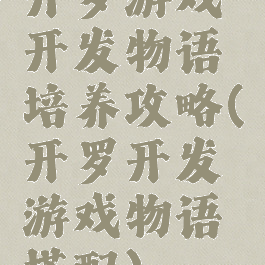 开罗游戏
开发物语
培养攻略(
开罗开发
游戏物语
搭配)